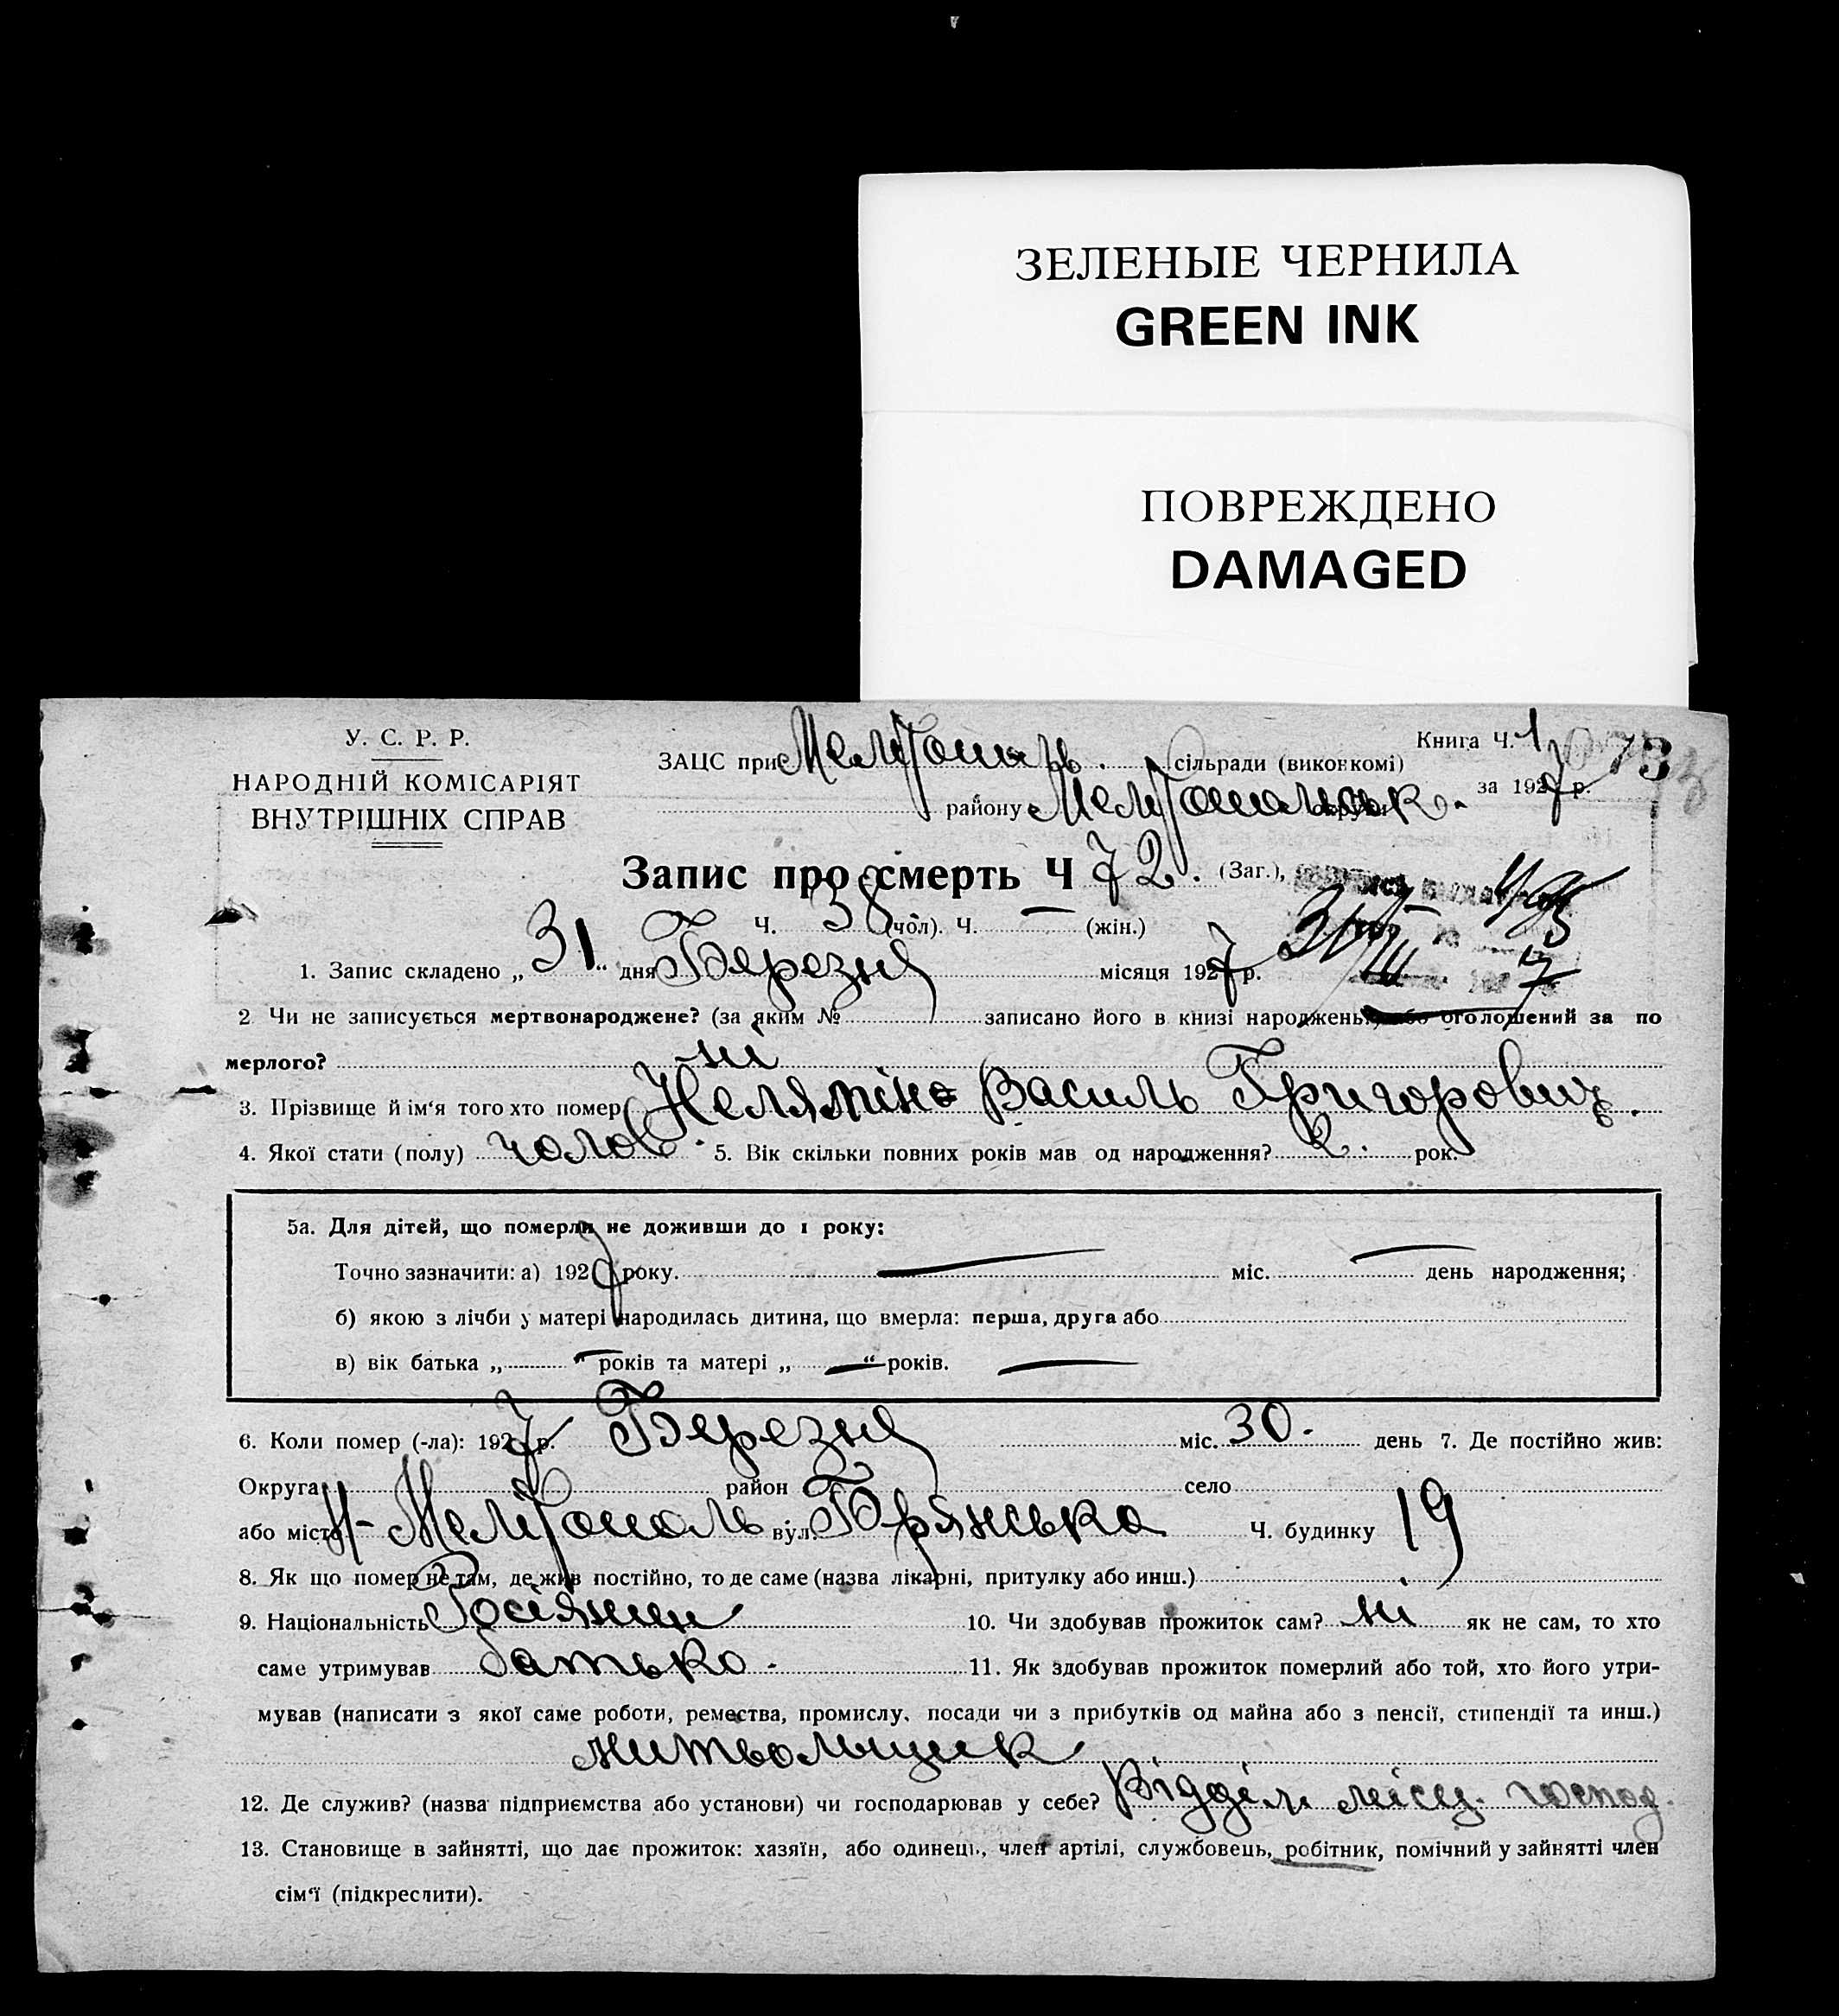 ЗЕЛЕНЫЕ ЧЕРНИЛА
GREEN INK
ПОВРЕЖДЕНО
DAMAGED
У. С. Р. Р.
НАРОДНІЙ КОМІСАРІЯТ
ВНУТРІШНІХ СПРАВ
Книга Ч. 1
73
ЗАЦС при Мелітополь. сільради (виконкомі)
району Мелітопольськ. округи за 1927 р.
Запис про смерть Ч 72. (Заг.),
Ч. 38 (чол). Ч. — (жін.)
1. Запис складено „31“ дня Березня місяця 1927 р.
2. Чи не записується мертвонароджене? (за яким № записано його в книзі народжень) або оголошений за по
мерлого? ні
3. Прізвище й ім'я того хто помер Василь Григорович.
4. Якої стати (полу) чолов. 5. Вік скільки повних років мав од народження? 2. рок.
5а. Для дітей, що померли не доживши до 1 року:
Точно зазначити: а) 1927 року. — міс. — день народження;
б) якою з лічби у матері народилась дитина, що вмерла: перша, друга або
в) вік батька „—“ років та матері „—“ років. —
6. Коли помер (-ла): 1927 р. Березня міс. 30. день 7. Де постійно жив:
Округа район село
або місто Н-Мелітополь вул. Брянська Ч. будинку 19
8. Як що помер не там, де жив постійно, то де саме (назва лікарні, притулку або инш.)
9. Національність Росіянин 10. Чи здобував прожиток сам? ні як не сам, то хто
саме утримував батько. 11. Як здобував прожиток померлий або той, хто його утри-
мував (написати з якої саме роботи, ремества, промислу, посади чи з прибутків од майна або з пенсії, стипендії та инш.)
12. Де служив? (назва підприємства або установи) чи господарював у себе? Відділ місц. господ.
13. Становище в зайнятті, що дає прожиток: хазяїн, або одинець, член артілі, службовець, робітник, помічний у зайнятті член
сім'ї (підкреслити).